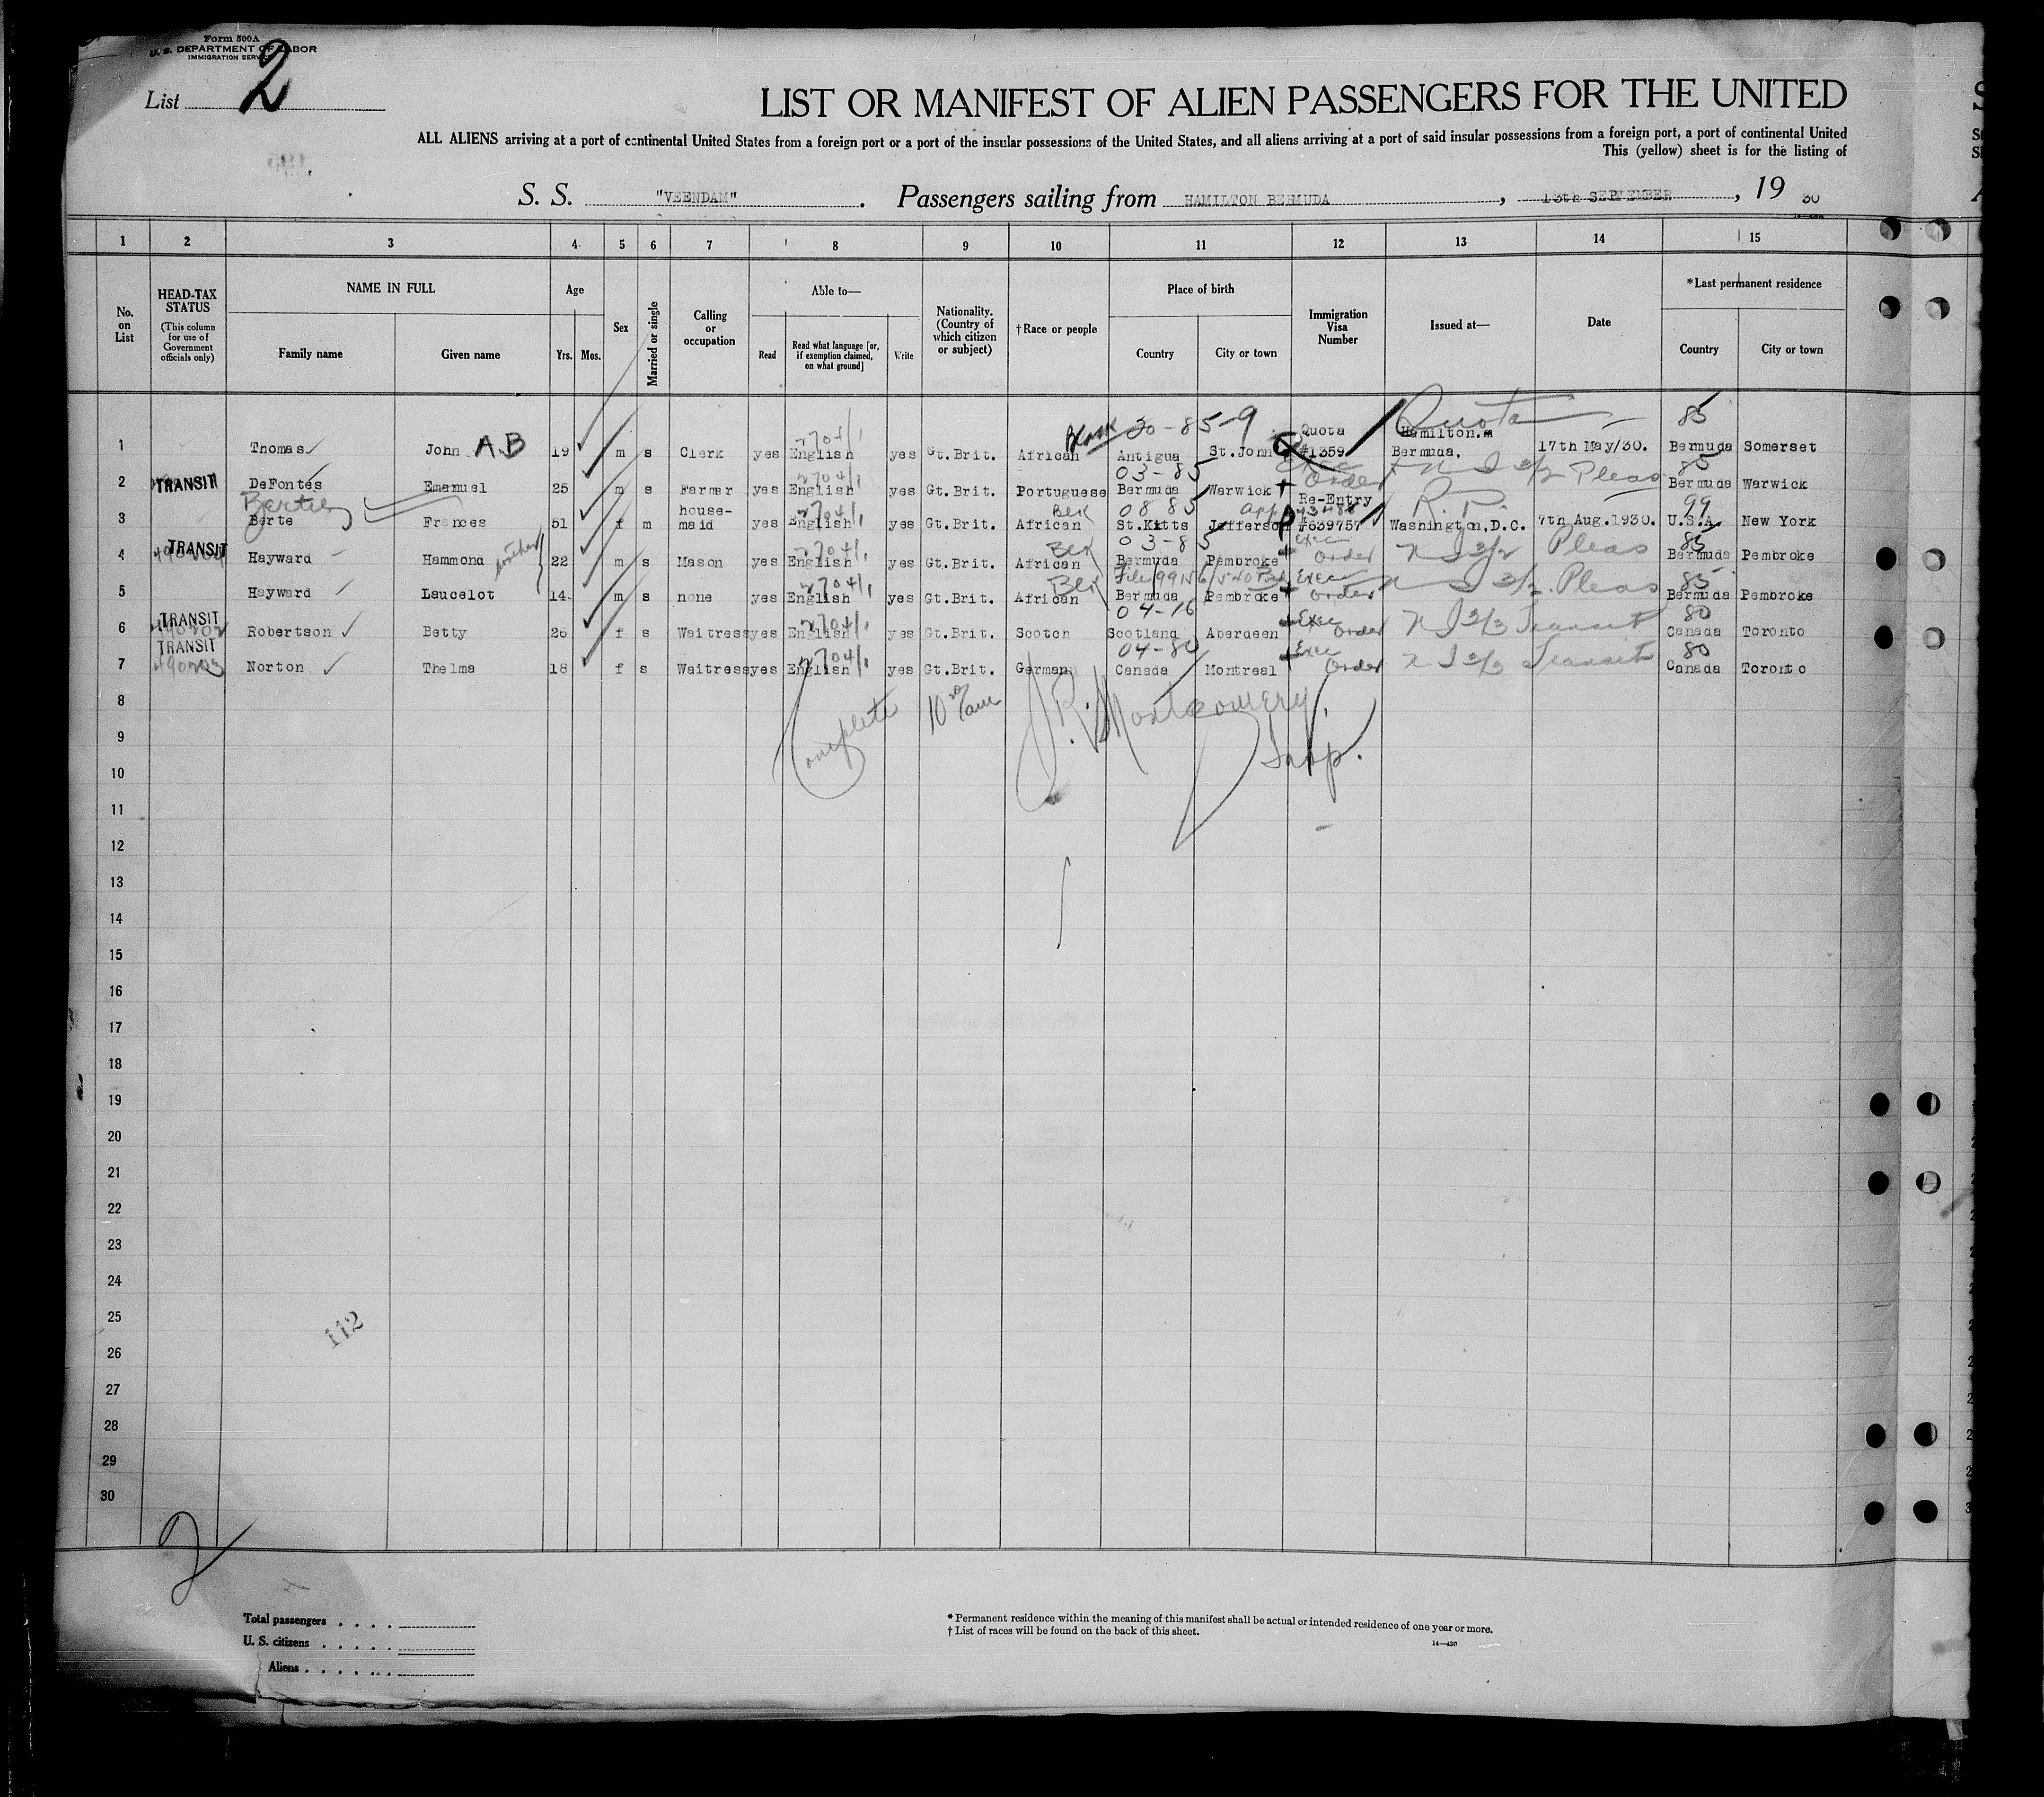 Form 500A
U. S. DEPARTMENT OF LABOR
IMMIGRATION SERVICE
List 2
LIST OR MANIFEST OF ALIEN PASSENGERS FOR THE UNITED
ALL ALIENS arriving at a port of continental United States from a foreign port or a port of the insular possessions of the United States, and all aliens arriving at a port of said insular possessions from a foreign port, a port of continental United
This (yellow) sheet is for the listing of
S. S. "VEENDAM". Passengers sailing from HAMILTON BERMUDA, 13th SEPTEMBER, 19 30
1 2 3 4 5 6 7 8 9 10 11 12 13 14 15
No. on List
HEAD-TAX STATUS (This column for use of Government officials only)
NAME IN FULL
Family name Given name
Age
Yrs. Mos.
Sex
Married or single
Calling or occupation
Able to—
Read Read what language [or, if exemption claimed, on what ground] Write
Nationality. (Country of which citizen or subject)
†Race or people
Place of birth
Country City or town
Immigration Visa Number
Issued at—
Date
*Last permanent residence
Country City or town
Black 30-85-9 Quota Quota 85
1 Thomas John AB 19 m s Clerk yes English yes Gt.Brit. African Antigua St.John #1359 Hamilton. Bermuda, 17th May/30. Bermuda Somerset
03-85 Exec Order Pleas 85
2 TRANSIT DeFontes Emanuel 25 m s Farmer yes English yes Gt.Brit. Portuguese Bermuda Warwick Bermuda Warwick
Blk 08 85 Re-Entry R.P. 99
3 Berte Frances 51 f m house-maid yes English yes Gt.Brit. African St.Kitts Jefferson #639757 Washington,D.C. 7th Aug.1930. U.S.A. New York
Blk 03-85 Exec Order Pleas 85
4 TRANSIT Hayward Hammond 22 m s Mason yes English yes Gt.Brit. African Bermuda Pembroke Bermuda Pembroke
Blk Exec Order Pleas 85
5 Hayward Laucelot 14 m s none yes English yes Gt.Brit. African Bermuda Pembroke Bermuda Pembroke
04-16 Exec Order Transit 80
6 TRANSIT Robertson Betty 26 f s Waitress yes English yes Gt.Brit. Scotch Scotland Aberdeen Canada Toronto
04-80 Exec Order Transit 80
7 TRANSIT 490203 Norton Thelma 18 f s Waitress yes English yes Gt.Brit. German Canada Montreal Canada Toronto
8
Complete J.R. Montgomery
9
Insp.
10
11
12
13
14
15
16
17
18
19
20
21
22
23
24
25
112
26
27
28
29
30
2
Total passengers
U. S. citizens
Aliens
* Permanent residence within the meaning of this manifest shall be actual or intended residence of one year or more.
† List of races will be found on the back of this sheet.
14—430